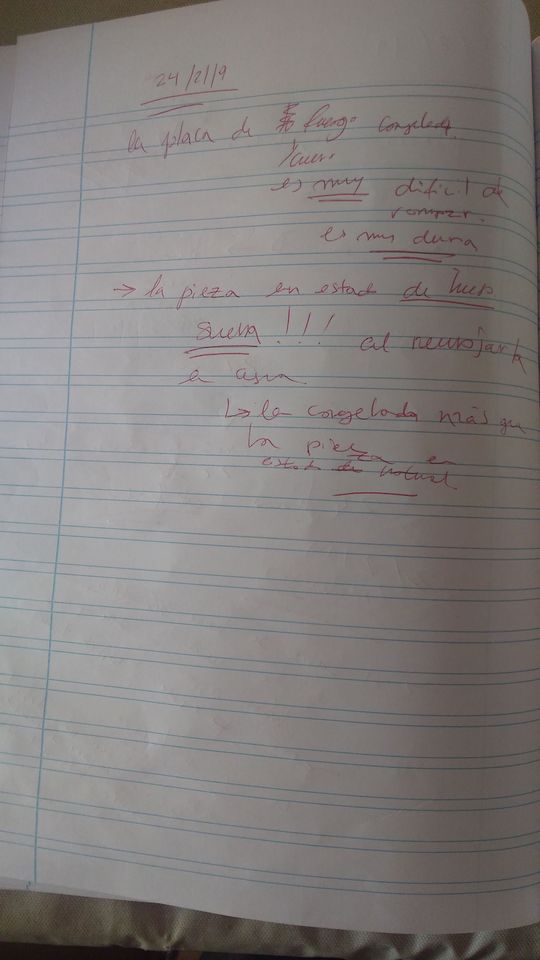 24/21/9
la placa de fuego congelada
es muy dificil de
romper.
es muy dura
→ la pieza en estado de hueso
Suena!!! al
en agua
↳ la congelada más que
la pieza en
estado de natural